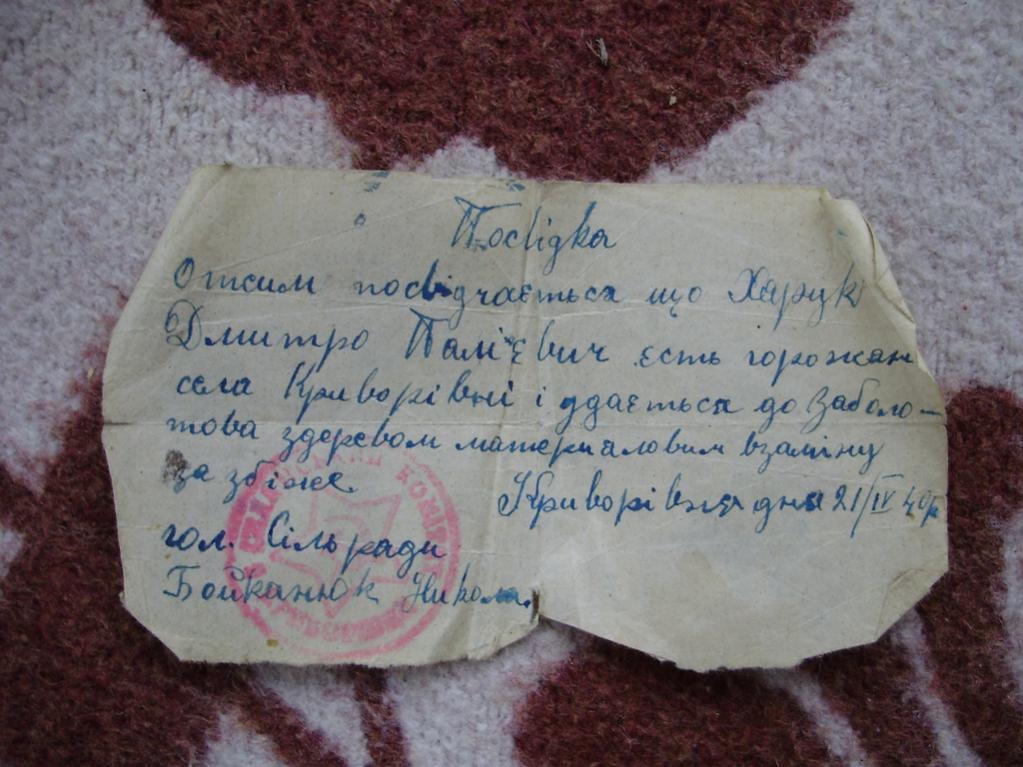 Посвідка
Отсим посвідчається що Харук
Дмитро Палієвич єсть горожан
села Криворівні і удається до Заболо-
това здеревом материаловим взаміну
за збіже.
Криворівня дня 21/IV 40р
гол. Сільради
Бойканюк Никола.
КОМІТЕТ